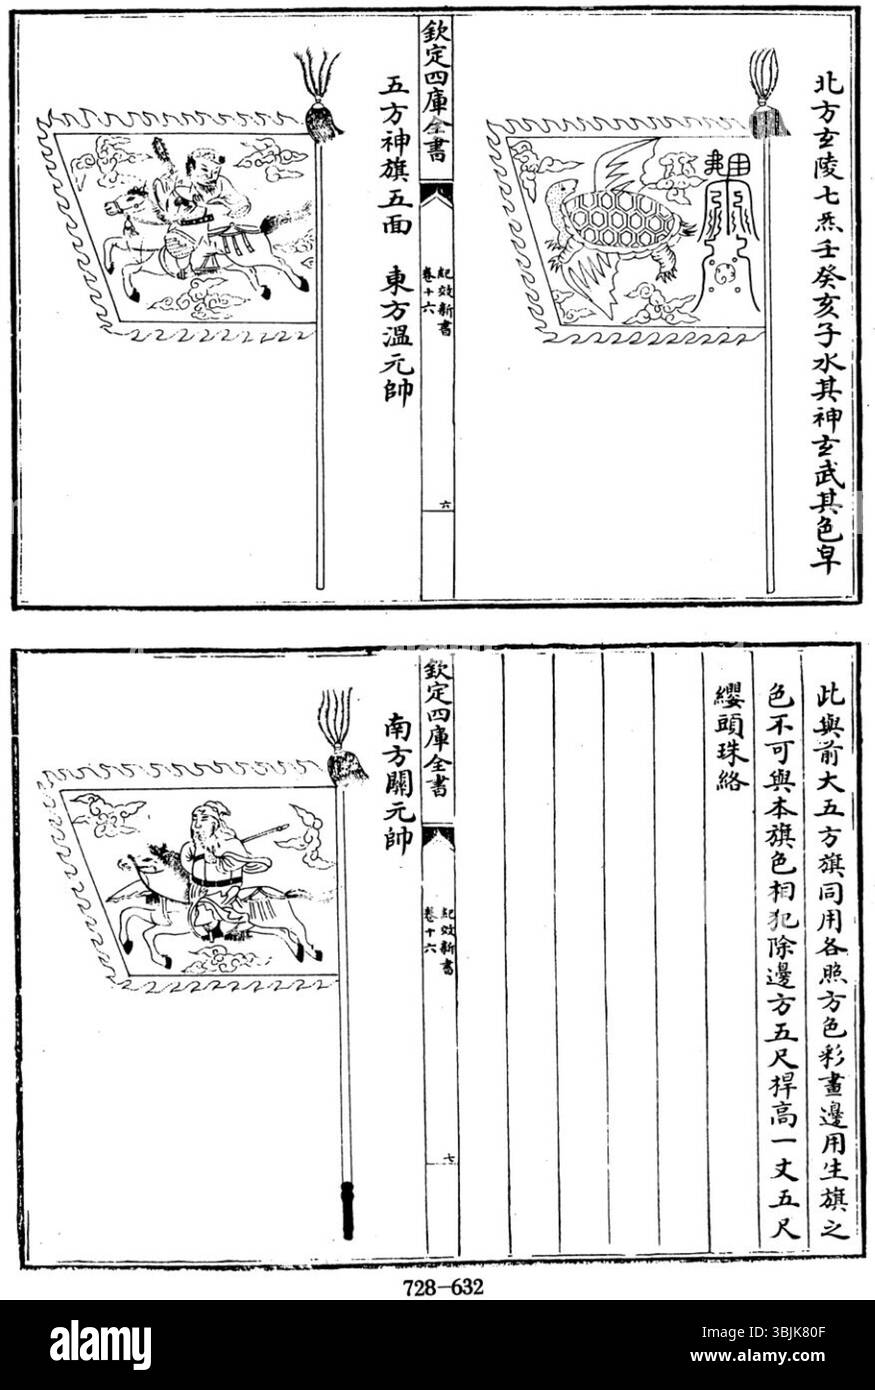 北方玄陵七炁壬癸亥子水其神玄武其色皁
欽定四庫全書
紀效新書
卷十六
六
五方神旗五面　東方溫元帥
此與前大五方旗同用各照方色彩畫邊用生旗之
色不可與本旗色相犯除邊方五尺桿高一丈五尺
纓頭珠絡
欽定四庫全書
紀效新書
卷十六
七
南方關元帥
728-632
alamy
Image ID: 3BJK80F
www.alamy.com